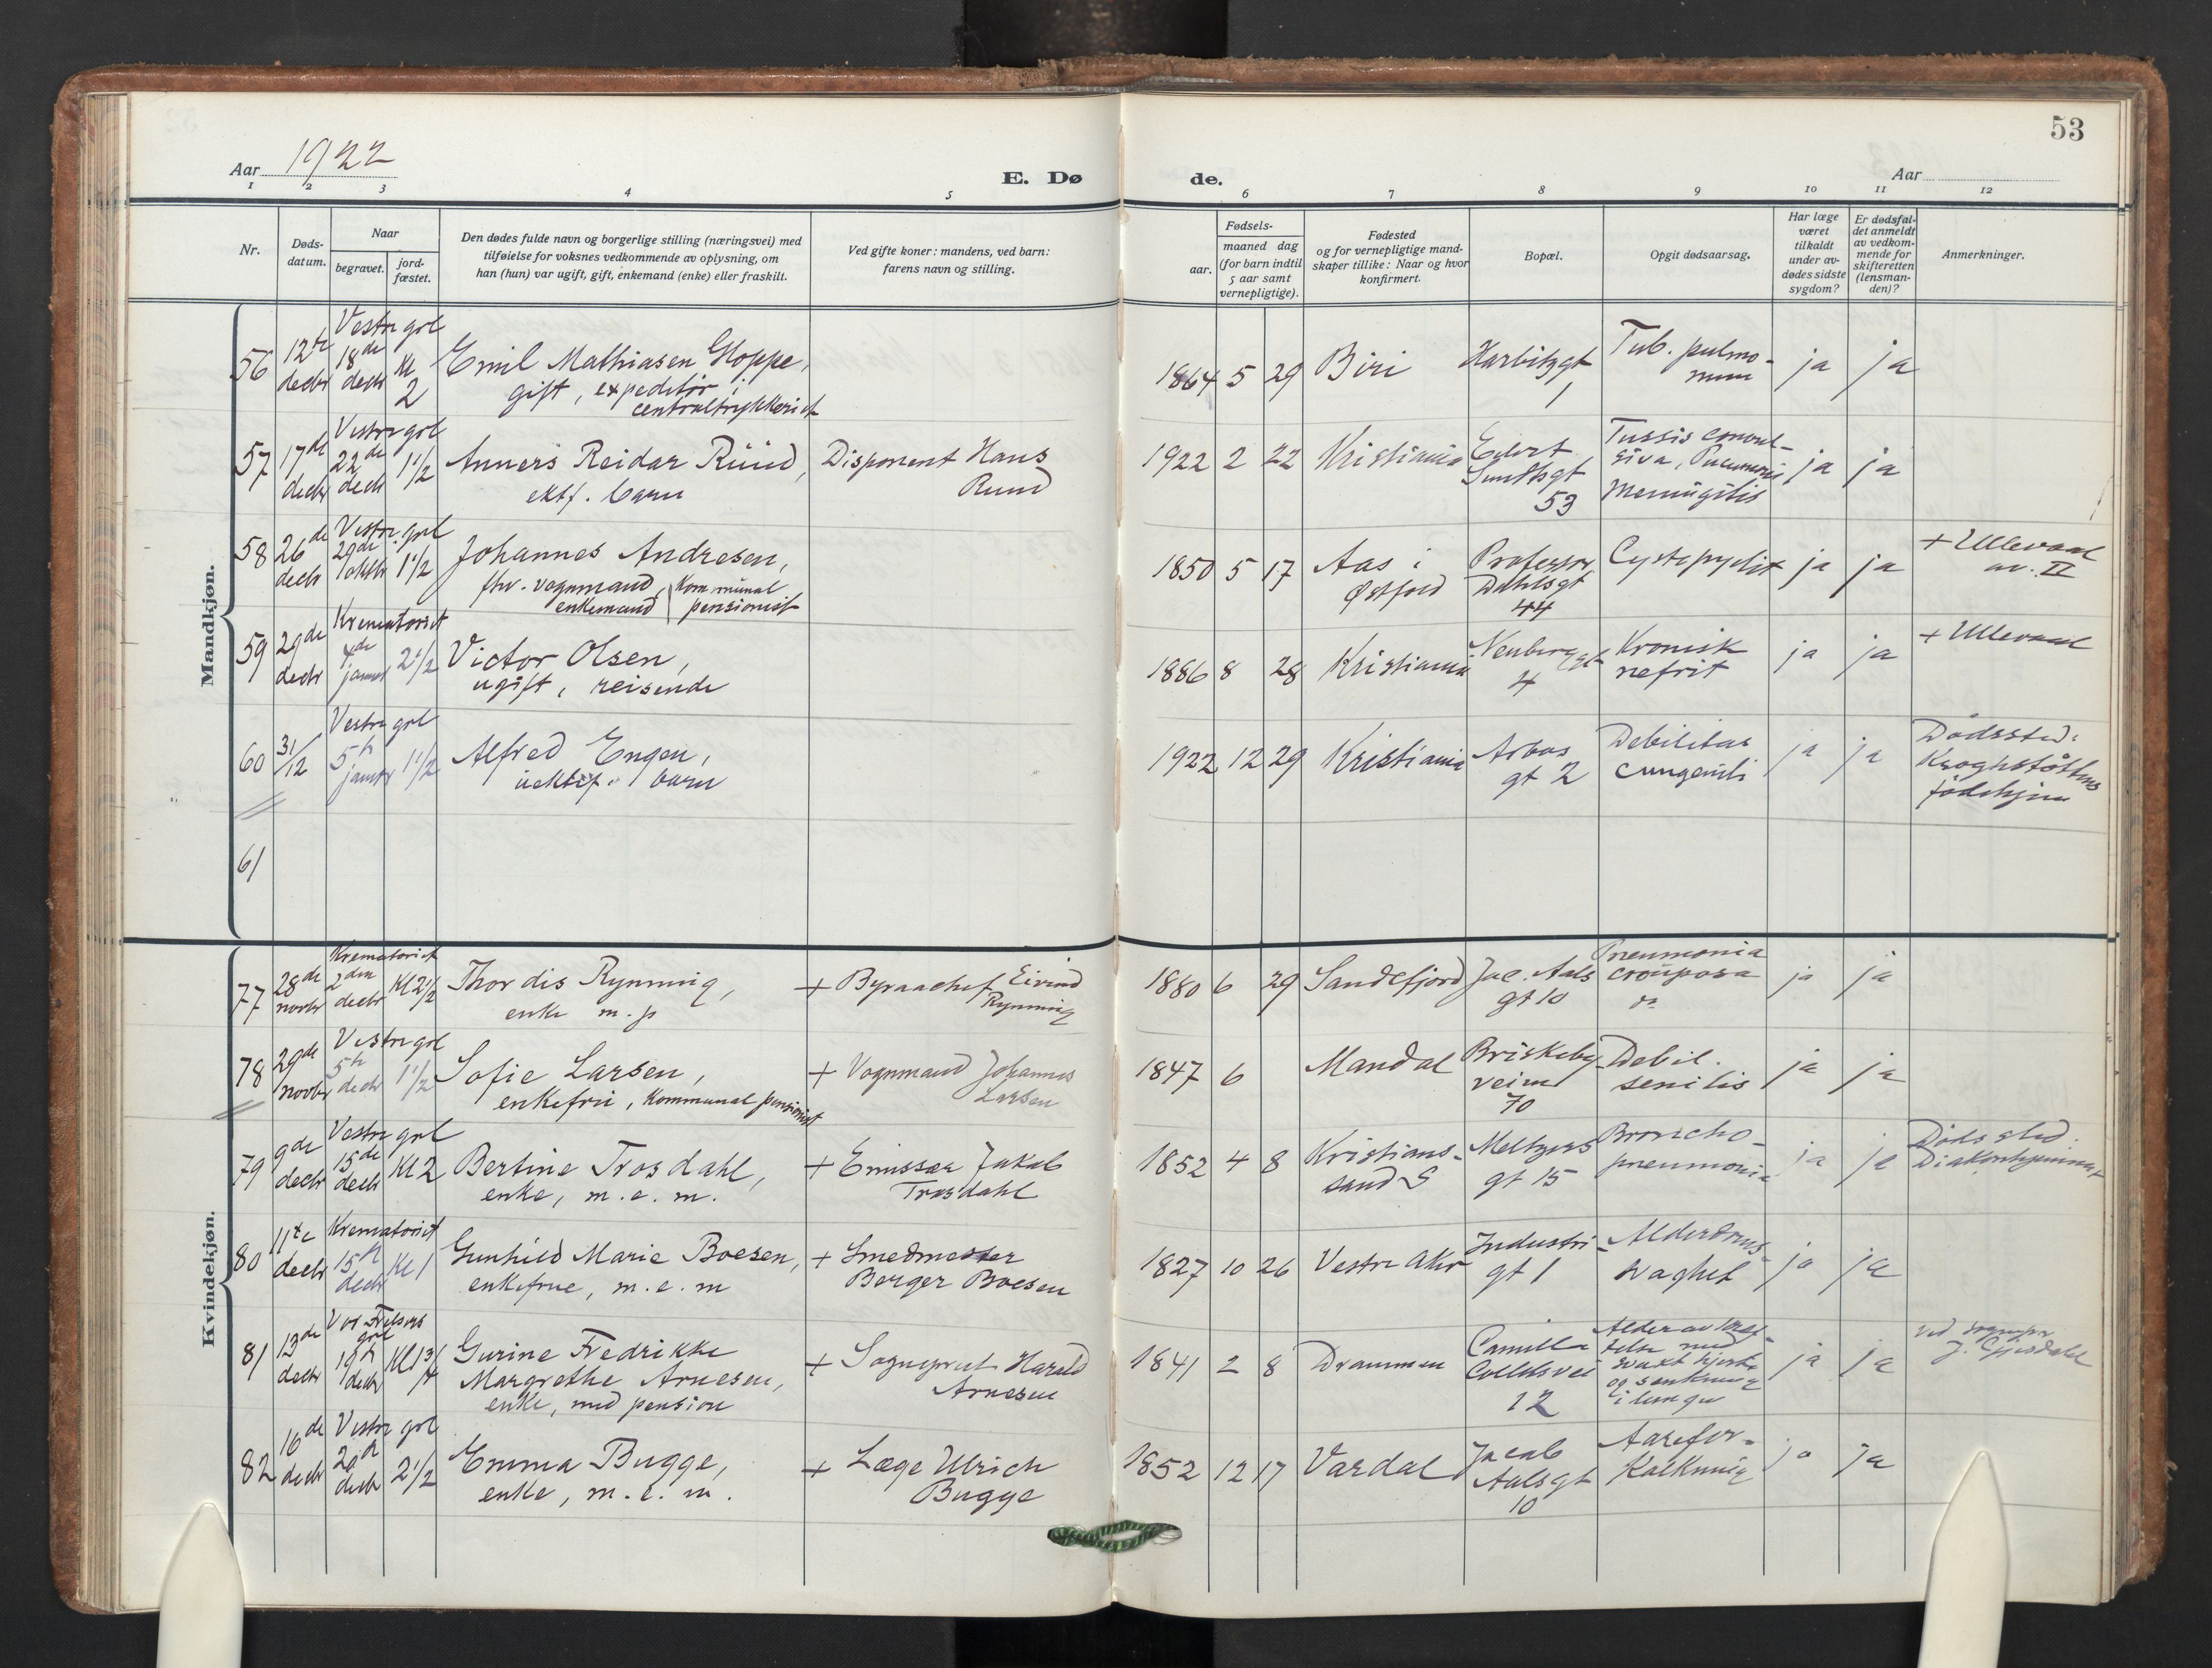 53
Aar 1922
E. Dø
de.
Aar
1 2 3 4 5 6 7 8 9 10 11 12
Nr.
Døds-
datum.
Naar
begravet.
jord-
fæstet.
Den dødes fulde navn og borgerlige stilling (næringsvei) med
tilføielse for voksnes vedkommende av oplysning, om
han (hun) var ugift, gift, enkemand (enke) eller fraskilt.
Ved gifte koner: mandens, ved barn:
farens navn og stilling.
Fødsels-
aar.
maaned dag
(for barn indtil
5 aar samt
vernepligtige).
Fødested
og for vernepligtige mand-
skaper tillike: Naar og hvor
konfirmert.
Bopæl.
Opgit dødsaarsag.
Har læge
været
tilkaldt
under av-
dødes sidste
sygdom?
Er dødsfal-
det anmeldt
av vedkom-
mende for
skifteretten
(lensman-
den)?
Anmerkninger.
Mandkjøn.
56
12te
decbr
Vestre grl
18de
decbr
Kl
2
Emil Mathiasen Gloppe,
gift, expeditør i
centraltrykkeriet
1864 5 29
Biri
Harbitzgt
1
Tub. pulmo-
num
ja
ja
57
17de
decbr
Vestre grl
22de
decbr
1 1/2
Anners Reidar Ruud,
ektf. barn
Disponent Hans
Ruud
1922 2 22
Kristiania
Eilert
Sundtsgt
53
Tussis convul-
siva, Pneumoni
Meningitis
ja
ja
58
26de
decbr
Vestre grl
29de
1 1/2
Johannes Andresen,
fhv. vognmand,
enkemand
Kommunal
pensionist
1850 5 17
Aas i
Østfold
Professor
Dahlsgt
44
Cystopyelit
ja
ja
+ Ullevaal
av. II
59
29de
decbr
Krematoriet
4de
januar
2 1/2
Victor Olsen,
ugift, reisende
1886 8 28
Kristiania
Neuberggt
4
Kronisk
nefrit
ja
ja
+ Ullevaal
60
31/12
Vestre grl
5te
januar
1 1/2
Alfred Engen,
uektef. barn
1922 12 29
Kristiania
Arbos
gt 2
Debilitas
congenita
ja
ja
Dödssted:
Kroghstöttens
födehjem
61
Kvindekjøn.
77
28de
novbr
Krematoriet
2den
decbr
Kl 2 1/2
Thordis Rynning,
enke m. p
+ Byraachef Eivind
Rynning
1880 6 29
Sandefjord
Jac. Aals
gt 10
Pneumonia
crouposa
ja
ja
78
29de
novbr
Vestre grl
5te
decbr
1 1/2
Sofie Larsen,
enkefru, Kommunal pensionist
+ Vognmand Johannes
Larsen
1847 6
Mandal
Briskeby-
veien
70
Debil.
senilis
ja
ja
79
9de
decbr
Vestre grl
15de
decbr
Kl 2
Bertine Trosdahl,
enke, m. e. m.
+ Emissær Jakob
Trosdahl
1852 4 8
Kristians-
sand S
Meltzers
gt 15
Broncho-
pneumonia
ja
ja
Dødssted:
Diakonhjemmet
80
11te
decbr
Krematoriet
15te
decbr
Kl 1
Gunhild Marie Boesen,
enkefrue, m. e. m
+ Smedmester
Berger Boesen
1827 10 26
Vestre Aker
Industri-
gt 1
Alderdoms-
svaghet
ja
ja
81
13de
decbr
Vor Frelsers
grl
19de
decbr
Kl 1 3/4
Gurine Fredrikke
Margrethe Arnesen,
enke, med pension
+ Sogneprest Harald
Arnesen
1841 2 8
Drammen
Camilla
Colletsvei
12
svakt hjerte
og senkning
i lunge
ja
ja
ved sognepr
82
16de
decbr
Vestre grl
20de
decbr
2 1/2
Emma Bugge,
enke, m. e. m.
+ Læge Ulrich
Bugge
1852 12 17
Vardal
Jacob
Aalsgt
10
Aarefor-
kalkning
ja
ja